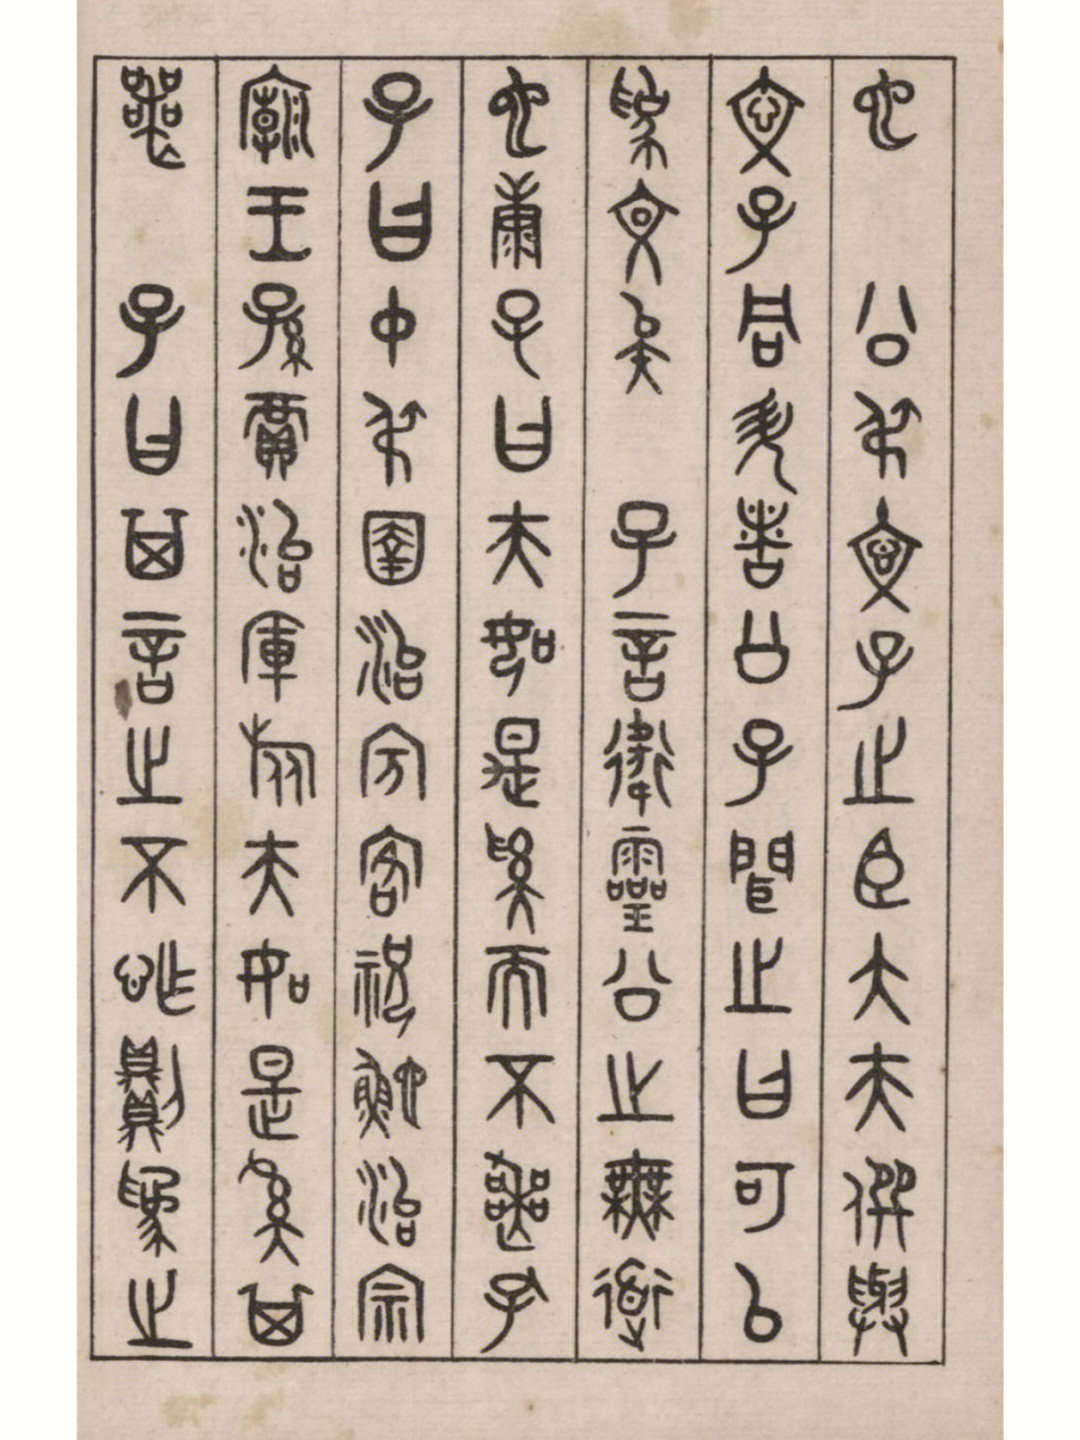 也　公叔文子之臣大夫僎與
文子同升諸公子聞之曰可以
為文矣　子言衛靈公之無道
也康子曰夫如是奚而不喪孔
子曰中叔圉治賓客祝鮀治宗
廟王孫賈治軍旅夫如是奚其
喪　子曰其言之不怍則為之